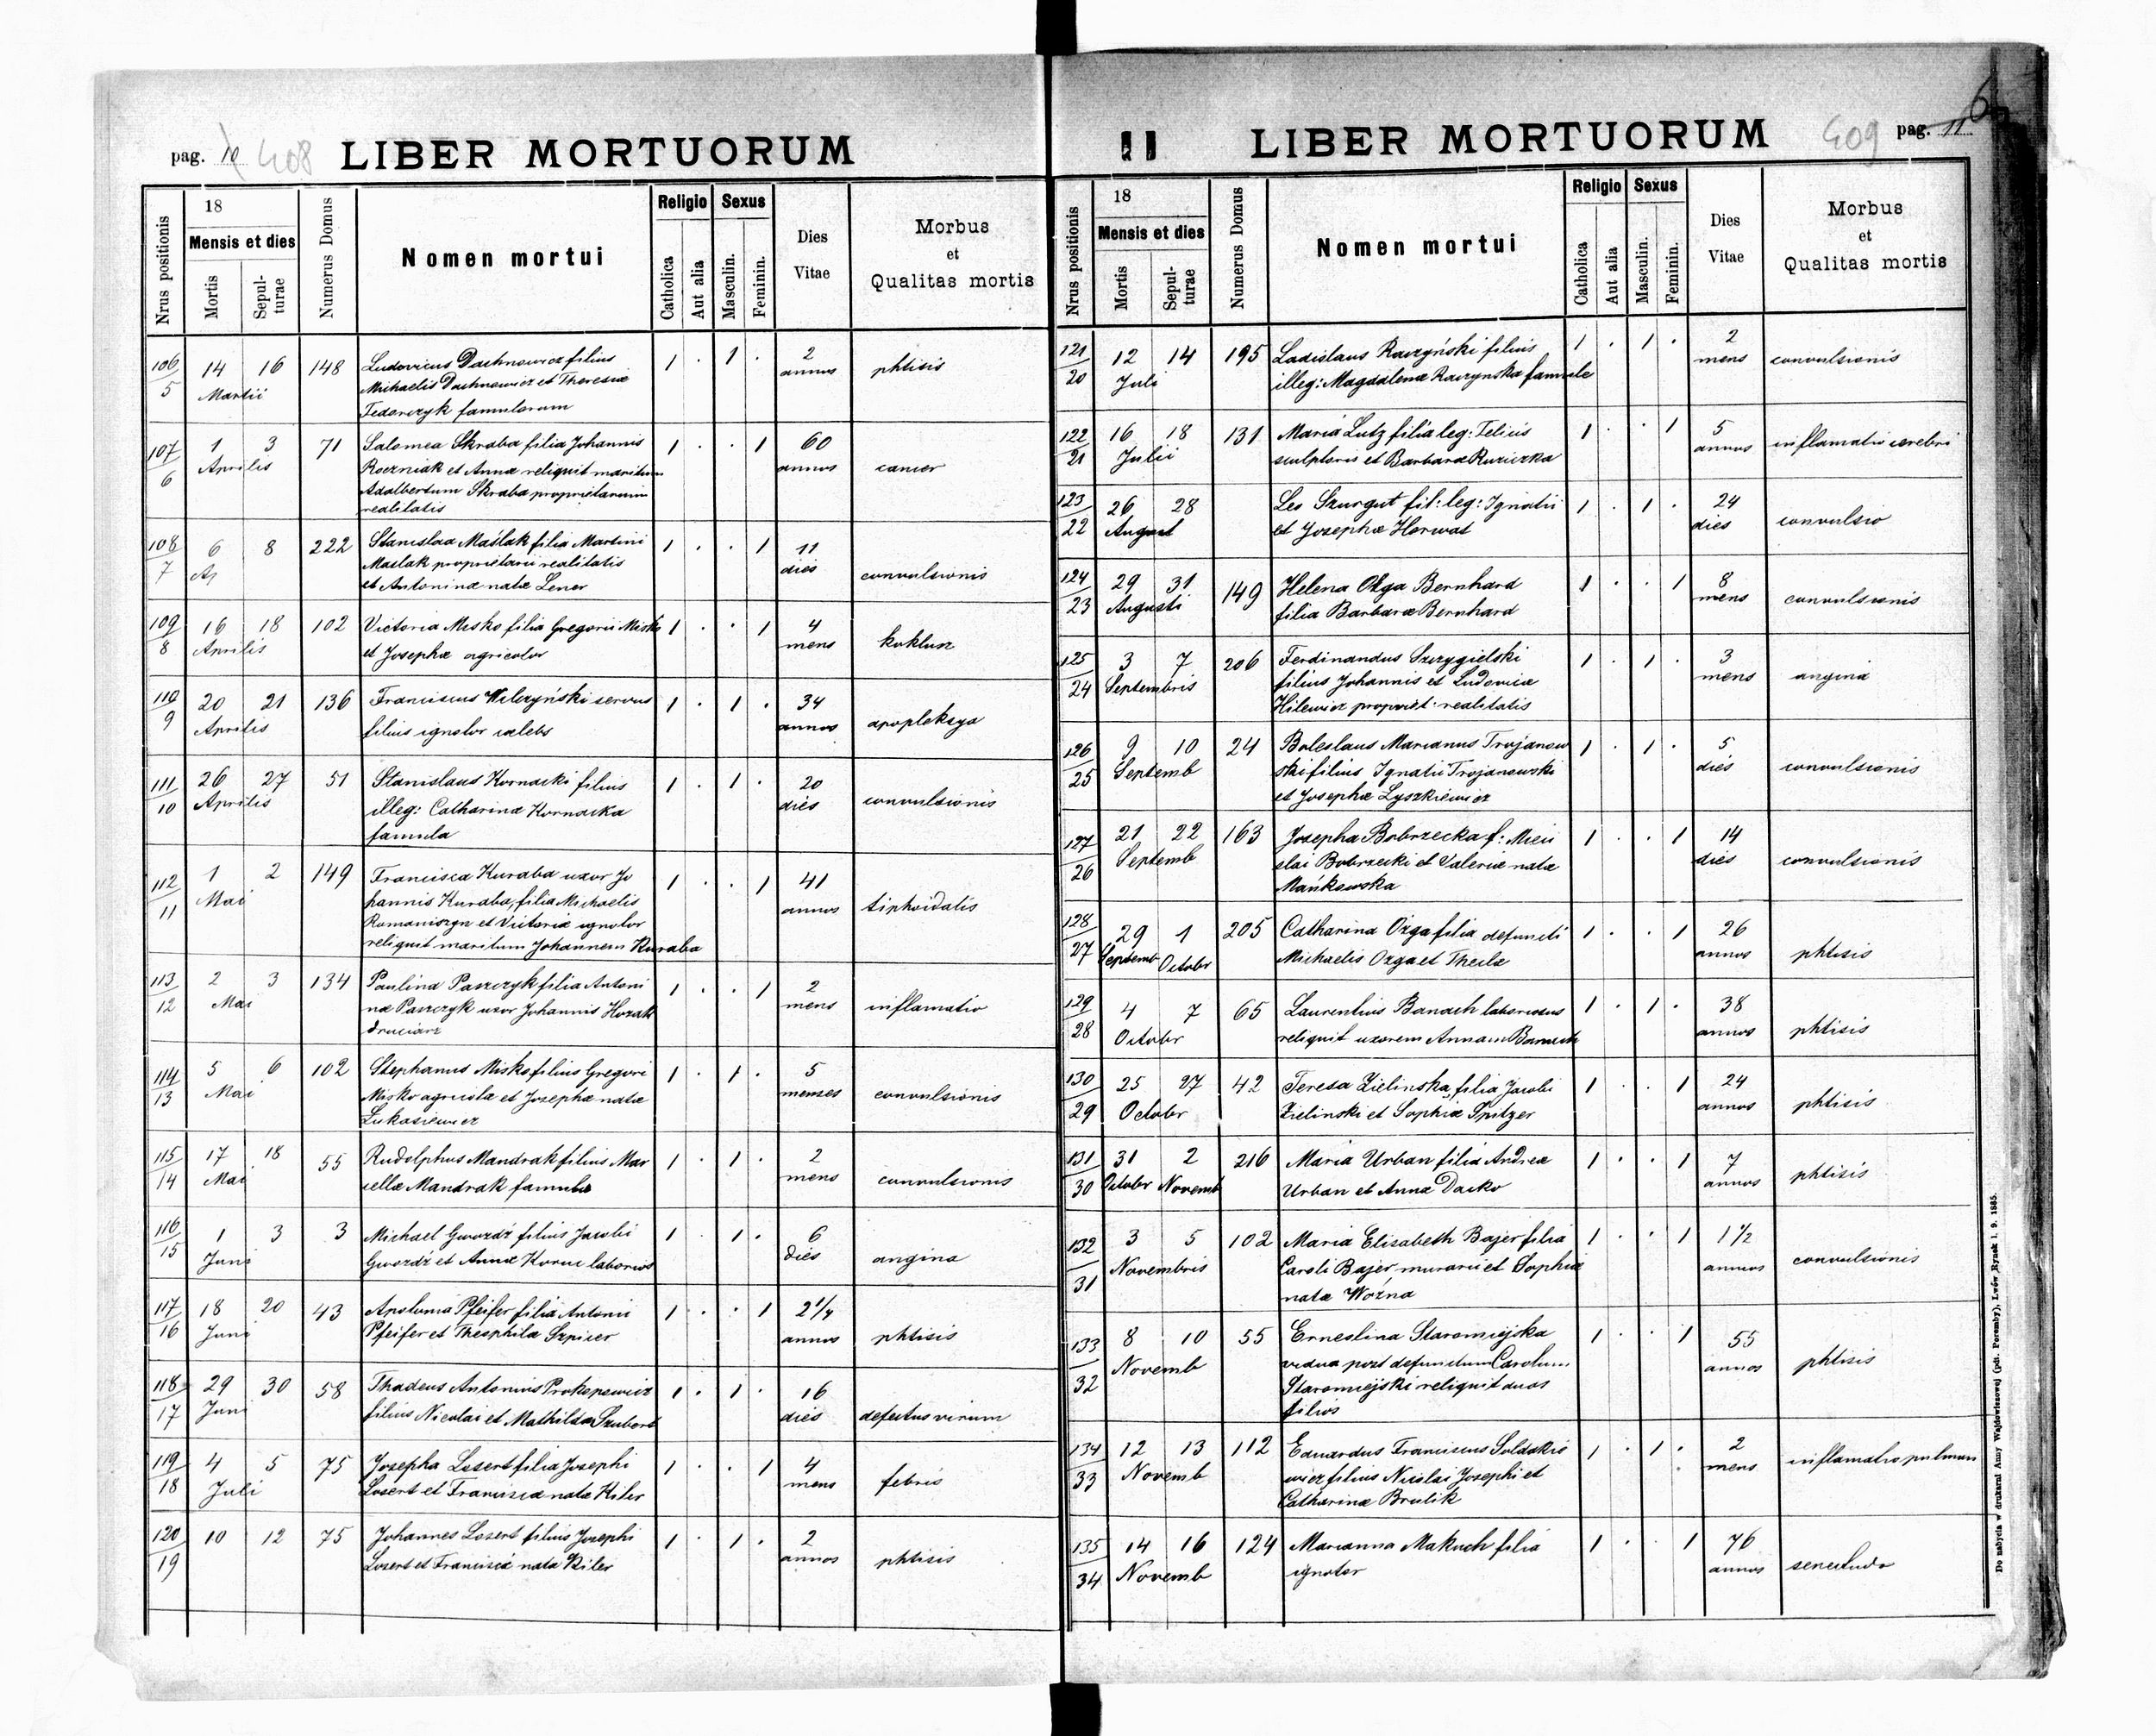 pag. 10 408 LIBER MORTUORUM
Nrus positionis
18
Mensis et dies
Mortis
Sepul-
turae
Numerus Domus
Nomen mortui
Religio
Catholica
Aut alia
Sexus
Masculin.
Feminin.
Dies
Vitae
Morbus
et
Qualitas mortis
106/5 14 16 148 Ludovicus Dachnowicz filius 1 . 1 . 2
Martii Michaelis Dachnowicz et Theresiæ annos phtisis
Fedorczyk famulorum
107/6 1 3 71 Salomea Skraba filia Johannis 1 . . 1 60
Aprilis Roczniak et Annæ reliquit maritum annos cancer
Adalbertum Skraba proprietarium
realitatis
108/7 6 8 222 Stanislaa Maślak filia Martini 1 . . 1 11
Ap Maslak proprietarii realitatis dies convulsionis
et Antoninæ natæ Lener
109/8 16 18 102 Victoria Misko filia Gregorii Misko 1 . . 1 4
Aprilis et Josephæ agricolor mens koklusz
110/9 20 21 136 Franciscus Wilczyński servus 1 . 1 . 34
Aprilis filius ignotor celebs annos apopleksya
111/10 26 27 51 Stanislaus Kornacki filius 1 . 1 . 20
Aprilis illeg: Catharinæ Kornacka dies convulsionis
famula
112/11 1 2 149 Francisca Kuraba uxor Jo 1 . . 1 41
Mai hannis Kuraba, filia Michaelis annos tiphoidalis
Romaniszyn et Victoriæ ignotor
reliquit maritum Johannem Kuraba
113/12 2 3 134 Paulina Paszczyk filia Antoni 1 . . 1 2
Mai næ Paszczyk uxor Johannis Hozak mens inflamatio
druciarz
114/13 5 6 102 Stephanus Misko filius Gregori 1 . 1 . 5
Mai Misko agricolæ et Josephæ natæ menses convulsionis
Lukasiewicz
115/14 17 18 55 Rudolphus Mandrak filius Mar 1 . 1 . 2
Mai cellæ Mandrak famula mens convulsionis
116/15 1 3 3 Michael Gwozdź filius Jacobi 1 . 1 . 6
Juni Gwozdź et Annæ Koruc laborios dies angina
117/16 18 20 43 Apolonia Pfeifer filia Antonii 1 . . 1 2 1/4
Juni Pfeifer et Theophilæ Szpicer annos phtisis
118/17 29 30 58 Thadeus Antonius Prokopowicz 1 . 1 . 16
Juni filius Nicolai et Mathilda Szubert dies defectus virium
119/18 4 5 75 Josepha Losert filia Josephi 1 . . 1 4
Juli Losert et Franciscæ natæ Kiler mens febris
120/19 10 12 75 Johannes Losert filius Josephi 1 . 1 . 2
Losert et Franciscæ nata Kiler annos phtisis
LIBER MORTUORUM 409 pag. 11
Nrus positionis
18
Mensis et dies
Mortis
Sepul-
turae
Numerus Domus
Nomen mortui
Religio
Catholica
Aut alia
Sexus
Masculin.
Feminin.
Dies
Vitae
Morbus
et
Qualitas mortis
121/20 12 14 195 Ladislaus Raczyński filius 1 . 1 . 2
Juli illeg: Magdalenæ Raczynska famule mens convulsionis
122/21 16 18 131 Maria Lutz filia leg: Felicis 1 . . 1 5
Julii sculptoris et Barbaræ Ruziczka annos inflamatio cerebri
123/22 26 28 Leo Szurgut fil: leg: Ignatii 1 . 1 . 24
August et Josephæ Horwat dies convulsio
124/23 29 31 149 Helena Olga Bernhard 1 . . 1 8
Augusti filia Barbaræ Bernhard mens convulsionis
125/24 3 7 206 Ferdinandus Szczygielski 1 . 1 . 3
Septembris filius Johannis et Ludovicæ mens angina
Hilewicz propriet. realitatis
126/25 9 10 24 Boleslaus Marianus Trojanow 1 . 1 . 5
Septemb ski filius Ignatii Trojanowski dies convulsionis
et Josephæ Lyszkiewicz
127/26 21 22 163 Josepha Bobrzecka f: Mieci 1 . . 1 14
Septemb slai Bobrzecki et Valeriæ natæ dies convulsionis
Mańkowska
128/27 29 1 205 Catharina Ozga filia defuncti 1 . . 1 26
Septemb Octobr Michaelis Ozga et Theclæ annos phtisis
129/28 4 7 65 Laurentius Banach laboriosus 1 . 1 . 38
Octobr reliquit uxorem Annam Banach annos phtisis
130/29 25 27 42 Teresa Zielinska filia Jacobi 1 . . 1 24
Octobr Zielinski et Sophiæ Spitzer annos phtisis
131/30 31 2 216 Maria Urban filia Andreæ 1 . . 1 7
Octobr Novemb Urban et Annæ Dacko annos phtisis
132/31 3 5 102 Maria Elisabeth Bajer filia 1 . . 1 1 1/2
Novembris Caroli Bajer murarii et Sophiæ annos convulsionis
natæ Woźna
133/32 8 10 55 Ernestina Staromiejska 1 . . 1 55
Novemb vidua post defunctum Carolum annos phtisis
Staromiejski reliquit duos
filios
134/33 12 13 112 Eduardus Franciscus Soldakie 1 . 1 . 2
Novemb wicz filius Nicolai Josephi et mens inflamatio pulmon
Catharinæ Brulik
135/34 14 16 124 Marianna Makuch filia 1 . . 1 76
Novemb ignotor annos senectudo
Do nabycia w drukarni Anny Wajdowiczowej (pdt. Poremby), Lwów Rynek l. 9. 1885.